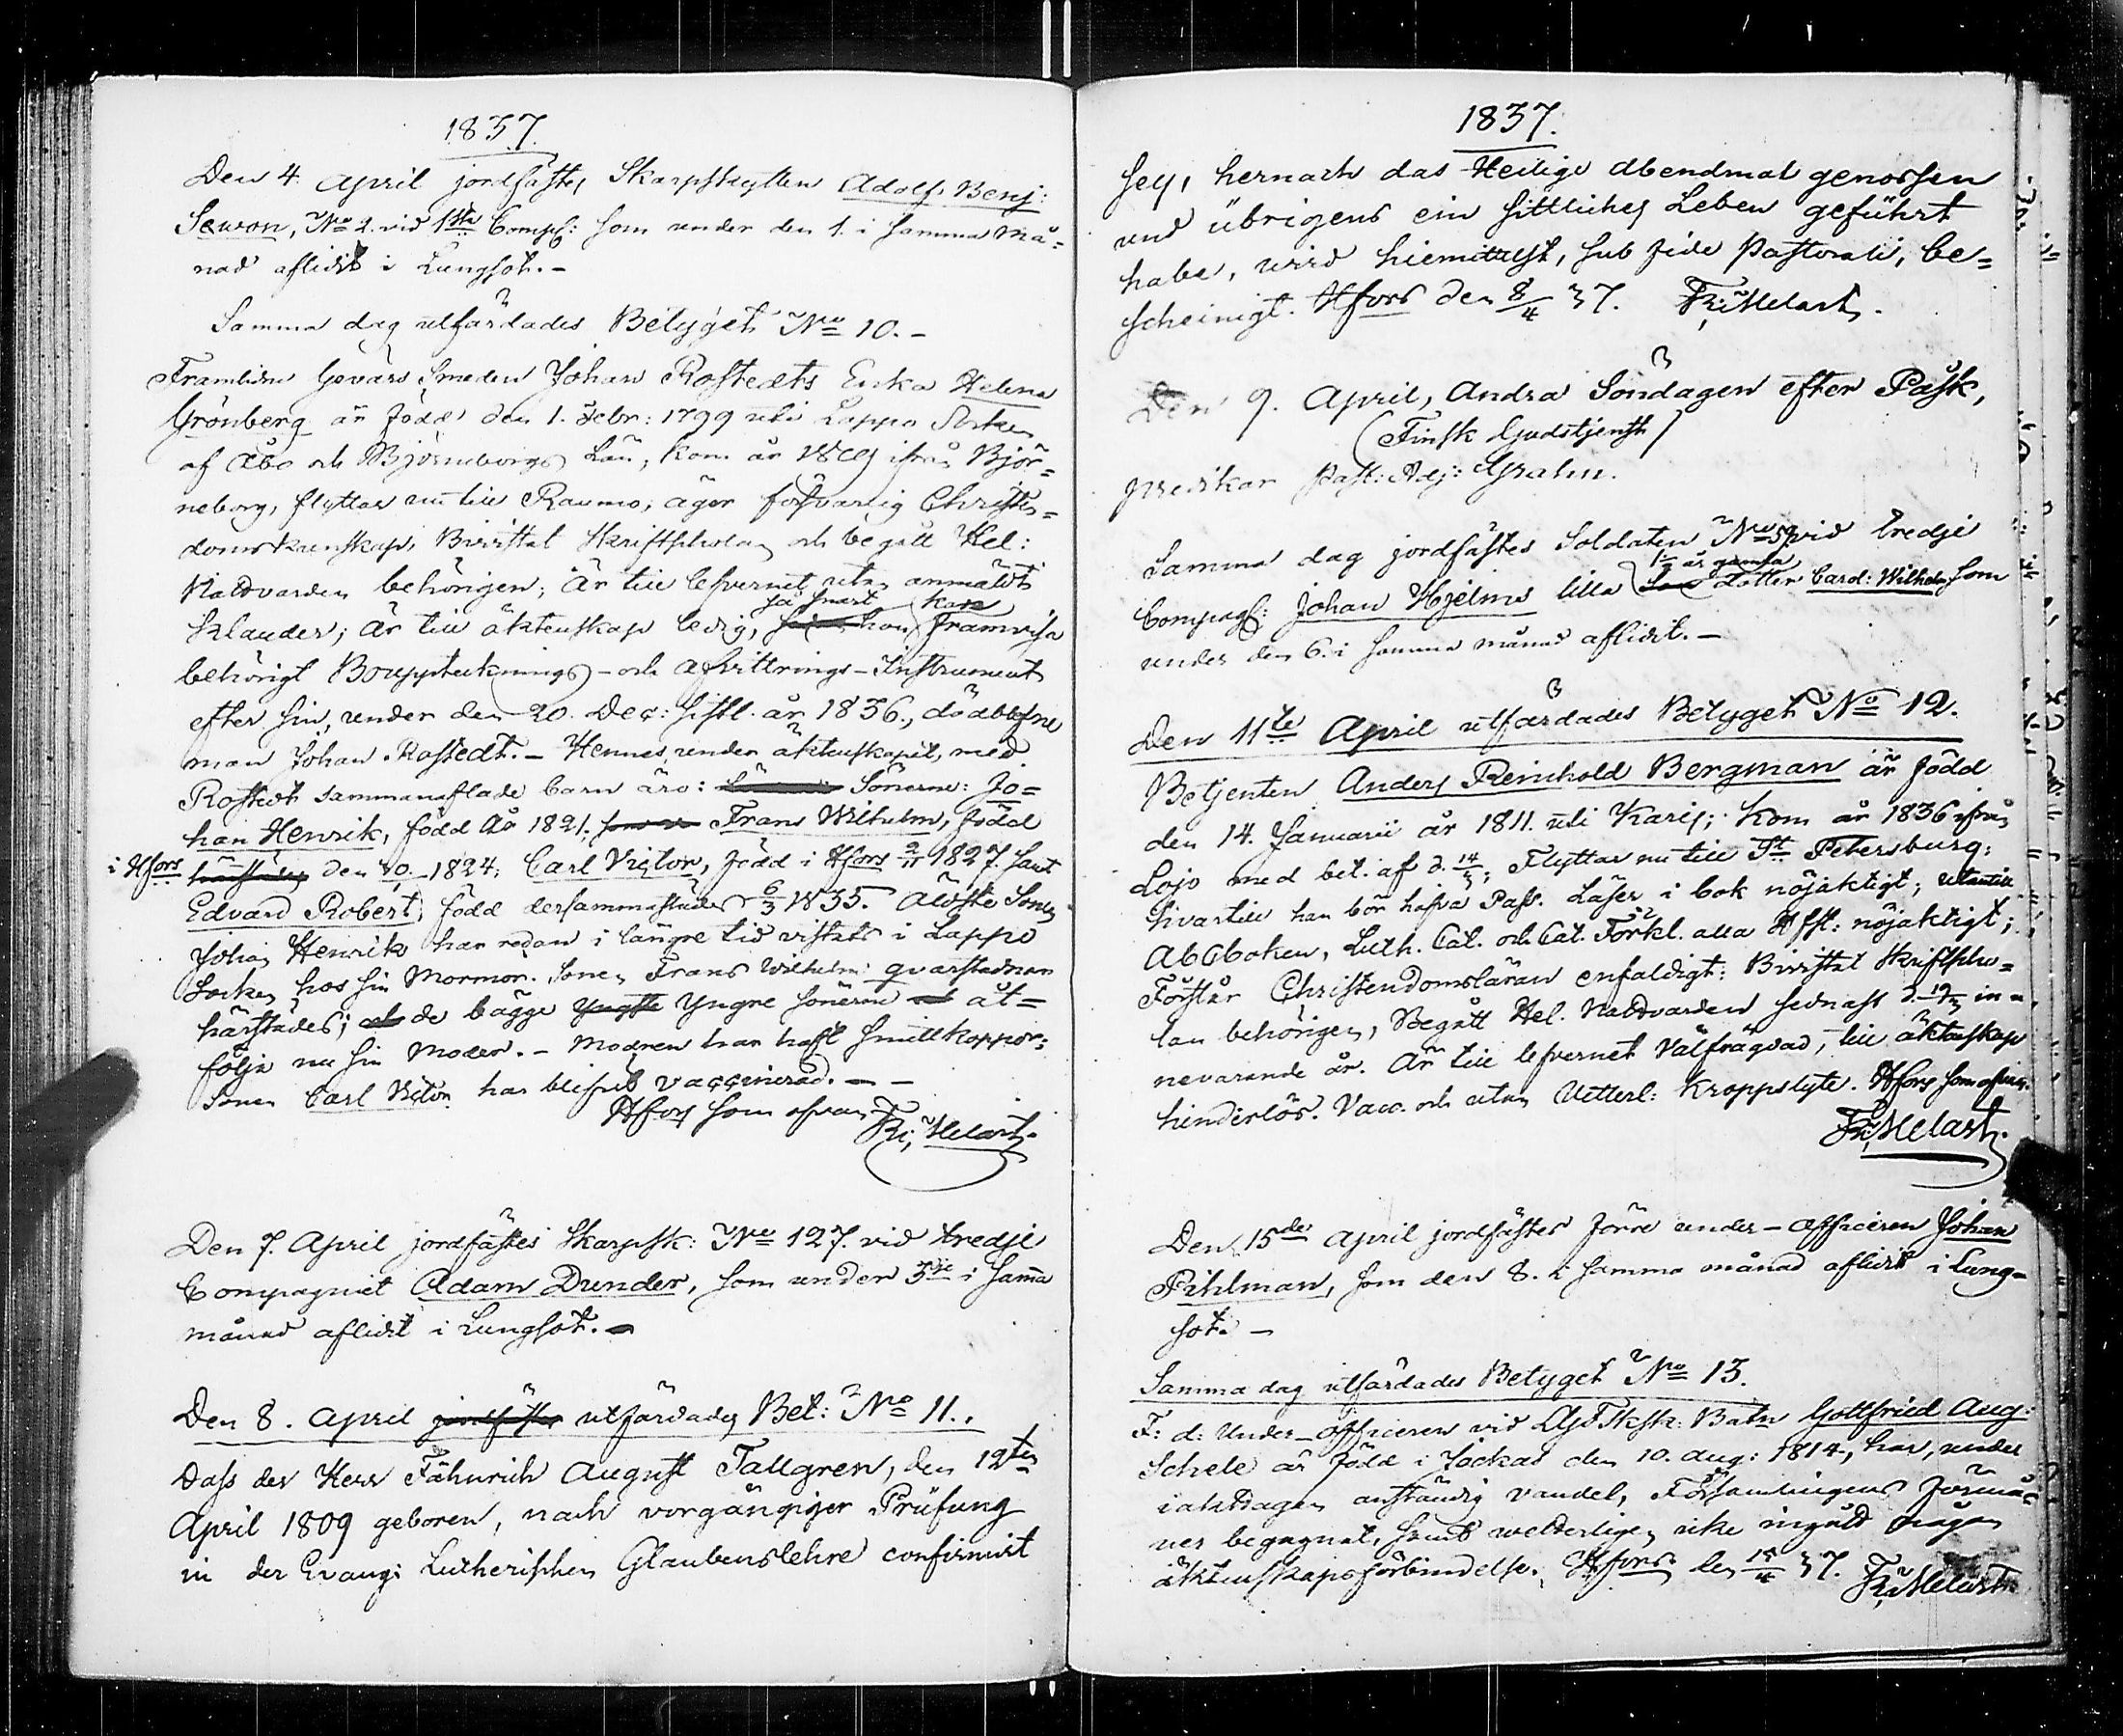 1837.
Den 4. April jordfästes Skarpskytten Adolf Benj:
Sewon, No 2. vid 1sta Comp: som under den 1. i samma må-
nad aflidit i Lungsot. -
Samma dag utfärdades Betyget No 10. -
Framlidne Gevärs Smeden Johan Rostedts Enka Helena
Grönberg är född den 1. Febr: 1799 uti Lappo Socken
af Åbo och Björneborgs Län, kom år ifrån Björ-
neborg, flyttar nu till Raumo; äger försvarlig Christen-
doms kunskap, Bivistat Skriftskolan och begått Hel:
Nattvarden behörigen; är till lefvernet utan anmäldt
klander; är till äktenskap ledig, så snart hon kan framvisa
behörigt Bouppteknings- och Afvittrings-Instrument
efter sin, under den 20. Dec: sistl. år 1836., dödblefne
man Johan Rostedt. - Hennes, under äktenskapet, med
Rostedt sammanaflade barn äro: Sönerne: Jo-
han Henrik, född År 1821. Frans Wilhelm, född
i Hfors härstädes den 1824; Carl Victor, född i Hfors 2/11 1827. samt
Edvard Robert, född dersammastädes 6/3 1835. Äldste Sonen
Johan Henrik har redan i längre tid vistats i Lappo
Socken hos sin Mormor. Sonen Frans Wilhelm qvarstadnar
härstädes; de bägge yngste yngre sönerne åt-
följa nu sin Moder. - Modren har haft Smittkoppor;
Sonen Carl Victor har blifvit vaccinerad. - -
Hfors som ofvan Fr: Melart.
Den 7. April jordfästes Skarpsk: No 127. vid tredje
Compagniet Adam Dunder, som under 3dje i samma
månad aflidit i Lungsot. -
Den 8. April jordfästes utfärdades Bet: No 11.
Dass der Herr Fähnrich August Tallgren, den 12ten
April 1809 geboren, nach vorgängiger Prüfung
in der Evang: Lutherischen Glaubenslehre confirmirt
1837.
sey, hernach das Heilige Abendmal genossen
und übrigens ein sittliches Leben geführt
habe, wird hiemittelst, sub fide Pastorali, be-
scheinigt. Hfors den 8/4 37. Fr: Melart.
Den 9. April, Andra Söndagen efter Påsk,
(Finsk Gudstjenst)
predikar Past: Adj:
Samma dag jordfästes Soldaten No 59 vid tredje
Compagn: Johan Hjelms lilla 1 1/2 år gamla dotter Carol: Wilhelm som
under den 6. i samma månad aflidit. -
Den 11te April utfärdades Betyget No 12.
Betjenten Anders Reinhold Bergman är född
den 14. Januarii år 1811. uti Karis; kom år 1836 ifrån
Lojo med bet. af d. 14/3; Flyttar nu till St Petersburg;
hvartill han bör hafva Pass. Läser i bok nöjaktigt; utantill
Abcboken, Luth. Cat. och Cat. Förkl. alla Hfst: nöjaktigt;
Förstår Christendomsläran enfaldigt: Bivistat Skriftsko-
lan behörigen, Begått Hel. Nattvarden sednast d. 19/3 in-
nevarande år. Är till lefvernet välfrägdad, till äktenskap
hinderlös. Vacc. och utan Vetterl: Kroppslyte. Hfors som ofvan.
Fr: Melart.
Den 15de April jordfästes förre under-officeren Johan
Pihlman, som den 8. i samma månad aflidit i Lung-
sot. -
Samma dag utfärdades Betyget No 13.
F: d: Under-officeren vid Batn Gottfried Aug:
Schele är född i Jockas den 10. Aug: 1814, har, under
iakttagen anständig vandel, Församlingens förmå-
ner begagnat, samt wetterligen icke ingått någon
äktenskapsförbindelse. Hfors den 15/4 37. Fr: Melart